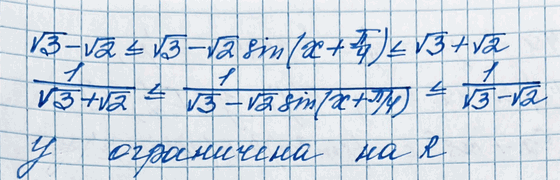 √3 − √2 ≤ √3 − √2 sin(x + π/4) ≤ √3 + √2
1/(√3 + √2) ≤ 1/(√3 − √2 sin(x + π/4)) ≤ 1/(√3 − √2)
y ограничена на R